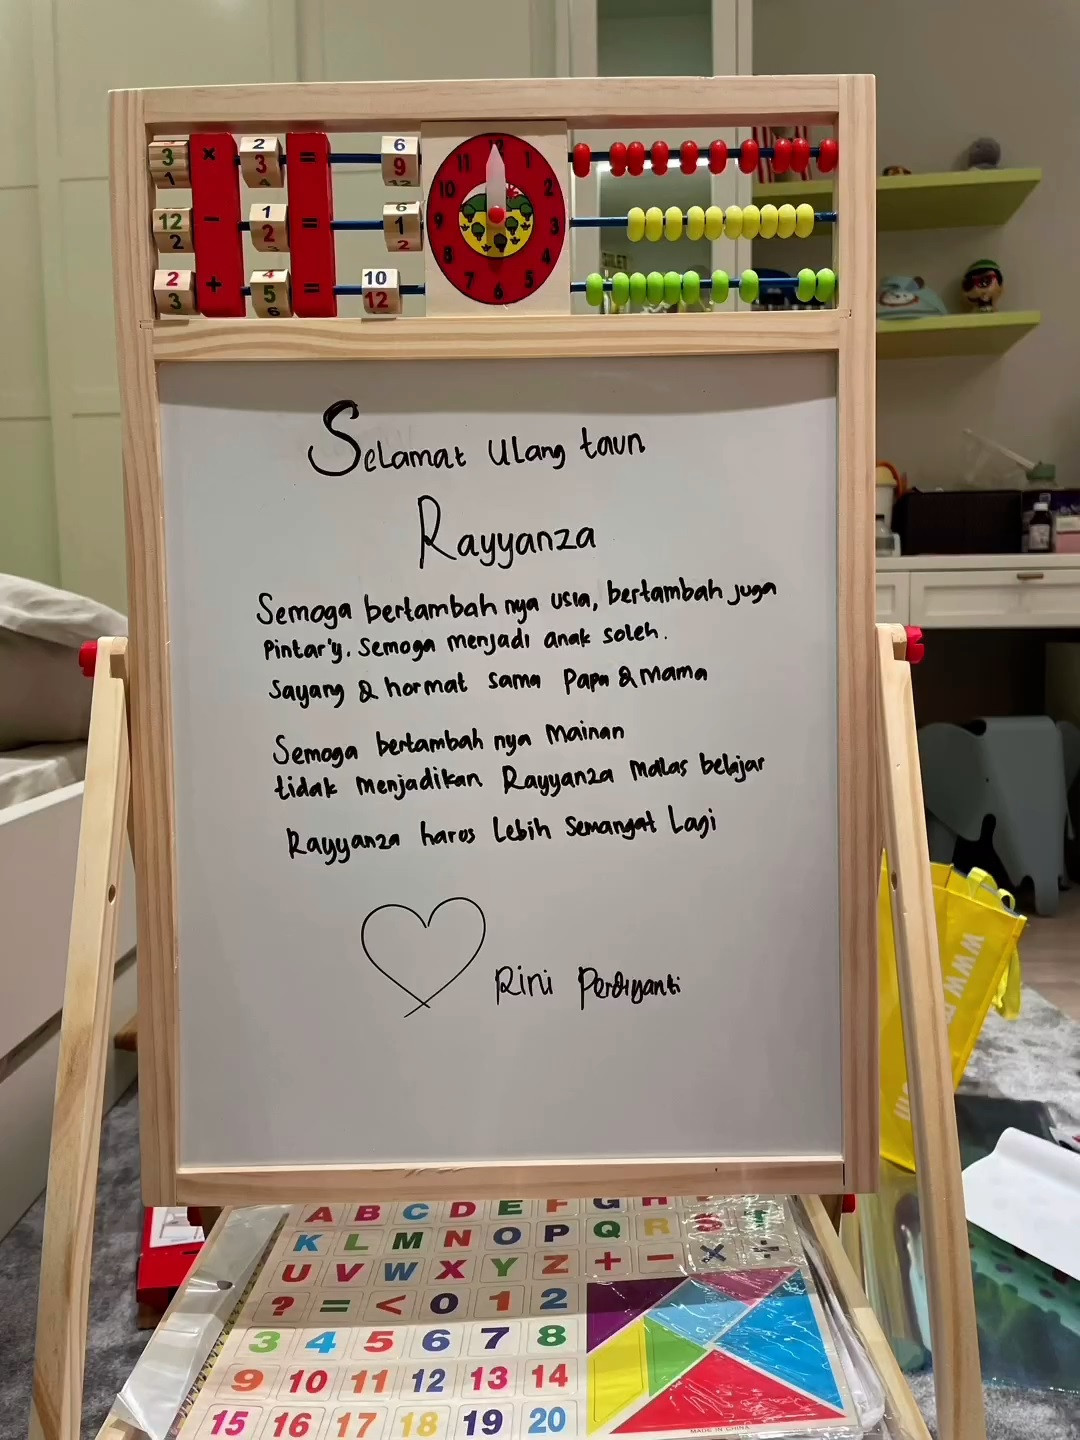 3 × 2 3 = 6 9
1 4 12
11 12 1
10 2
9 3
8 4
7 6 5
12 - 1 2 = 6 1
2 3 2
2 + 4 5 = 10 12
3 6
Selamat Ulang taun
Rayyanza
Semoga bertambah nya usia, bertambah juga
Pintar'y. Semoga menjadi anak soleh.
Sayang & hormat sama Papa & Mama
Semoga bertambah nya Mainan
tidak Menjadikan Rayyanza Malas belajar
Rayyanza harus Lebih Semangat Lagi
Rini Perdiyanti
A B C D E F G H
K L M N O P Q R S
U V W X Y Z + - × ÷
? = < 0 1 2
3 4 5 6 7 8
9 10 11 12 13 14
15 16 17 18 19 20
MADE IN CHINA
WWW